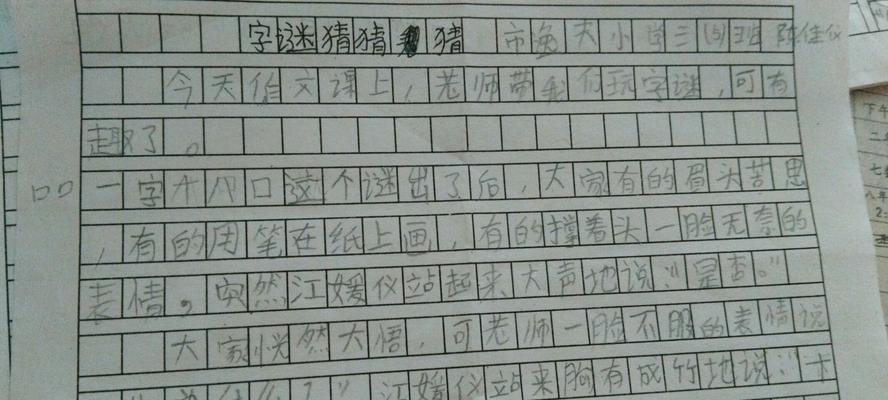 字谜猜猜猜 市渔夫小学三(5)班 陈佳仪
今天作文课上，老师带我们玩字谜，可有
趣了。
口口一字十八口这个谜出了后，大家有的眉头苦思
，有的用笔在纸上画，有的撑着头一脸无奈的
表情。突然江媛仪站起来大声地说：“是杏。”
大家恍然大悟，可老师一脸不服的表情说
江媛仪站来胸有成竹地说：“
下午
二
七
八年
2